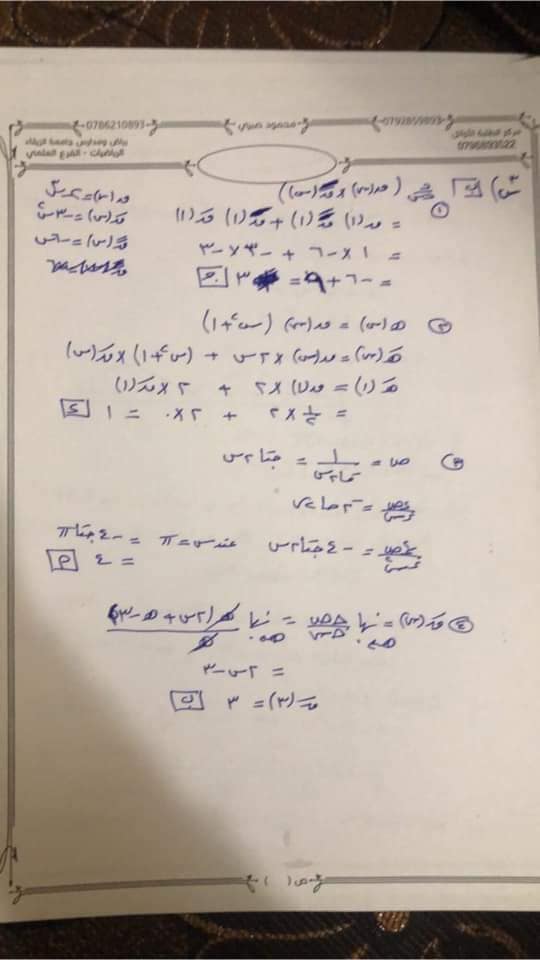 0786210893 محمود صبري 0792859893
رياض ومدارس جامعة الزرقاء
الرياضيات - الفرع العلمي
مركز الطلبة الأوائل
0796893522
س٣) ب
① (ق(س) × قَ(س))
= ق(١) قً(١) + قَ(١) قَ(١)
= ١ × -٦ + -٣ × -٣
= -٦ + ٩ = ٣ ج
قَ(س) = -٣س٢
قً(س) = -٦س
② هـ(س) = ق(س) (س٢ + ١)
هـَ(س) = ق(س) × ٢س + (س٢ + ١) × قَ(س)
هـَ(١) = ق(١) × ٢ + ٢ × قَ(١)
= ١/٢ × ٢ + ٢ × ٠ = ١ د
③ ص = ١/قا٢س = جتا٢س
دص/دس = -٢جا٢س
د٢ص/دس٢ = -٤جتا٢س عند س = π = -٤جتا٢π
= ٤ م
④ قَ(س) = نها هـ←٠ Δص/Δس = نها هـ←٠ هـ(٢س + هـ - ٣)/هـ
= ٢س - ٣
قَ(٣) = ٣ ب
ص( )